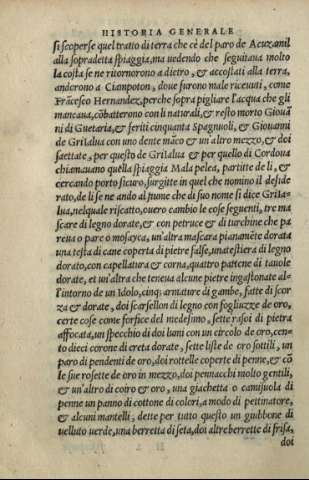 HISTORIA GENERALE
si scoperse quel tratto di terra che cè del paro de Acuzamil
alla sopradetta spiaggia, ma uedendo che seguitaua molto
la costa se ne ritornorono a dietro, & accostati alla terra,
andorono a Cianpoton, doue furono male riceuuti, come
Frãcesco Hernandez, perche sopra pigliare l'acqua che gli
mancaua, cõbatterono con li naturali, & resto morto Gioua
ni de Guetaria, & feriti cinquanta Spagnuoli, & Giouanni
de Grilalua con uno dente mãco & un altro mezzo, & doi
saettate, per questo de Grilalua & per quello di Cordoua
chiamauano quella spiaggia Mala pelea, partitte de li, &
cercando porto sicuro, surgitte in quel che nomino il deside
rato, de li se ne ando al fiume che di suo nome si dice Grila-
lua, nelquale riscatto, uuero cambio le cose seguenti, tre ma
scare di legno dorate, & con petruce & di turchine che pa
reua o pare o mosayca, un'altra mascara pianamẽte dorata
una testa di cane coperta di pietre false, una testiera di legno
dorato, con capellatura & corna, quattro pattene di tauole
dorate, et un'altra che teneua alcune pietre ingastonate al-
l'intorno de un Idolo, cinq; armature di gambe, fatte di scor
za & dorate, doi scarselloni di legno con fogliuzze de oro,
certe cose come forfice del medesimo, sette rasoi di pietra
affocata, un specchio di doi lumi con un circolo de oro, cen-
to dieci corone di creta dorate, sette liste de oro sottili, un
paro di pendenti de oro, doi rottelle coperte di penne, & cõ
le sue rosette de oro in mezzo, doi pennacchi molto gentili,
& un'altro di coiro & oro, una giachetta o camisuola di
penne un panno di cottone di colori, a modo di pettinatore,
& alcuni mantelli, dette per tutto questo un giubbone di
uelluto verde, una berretta di seta, doi altre berrette di frisa,
doi